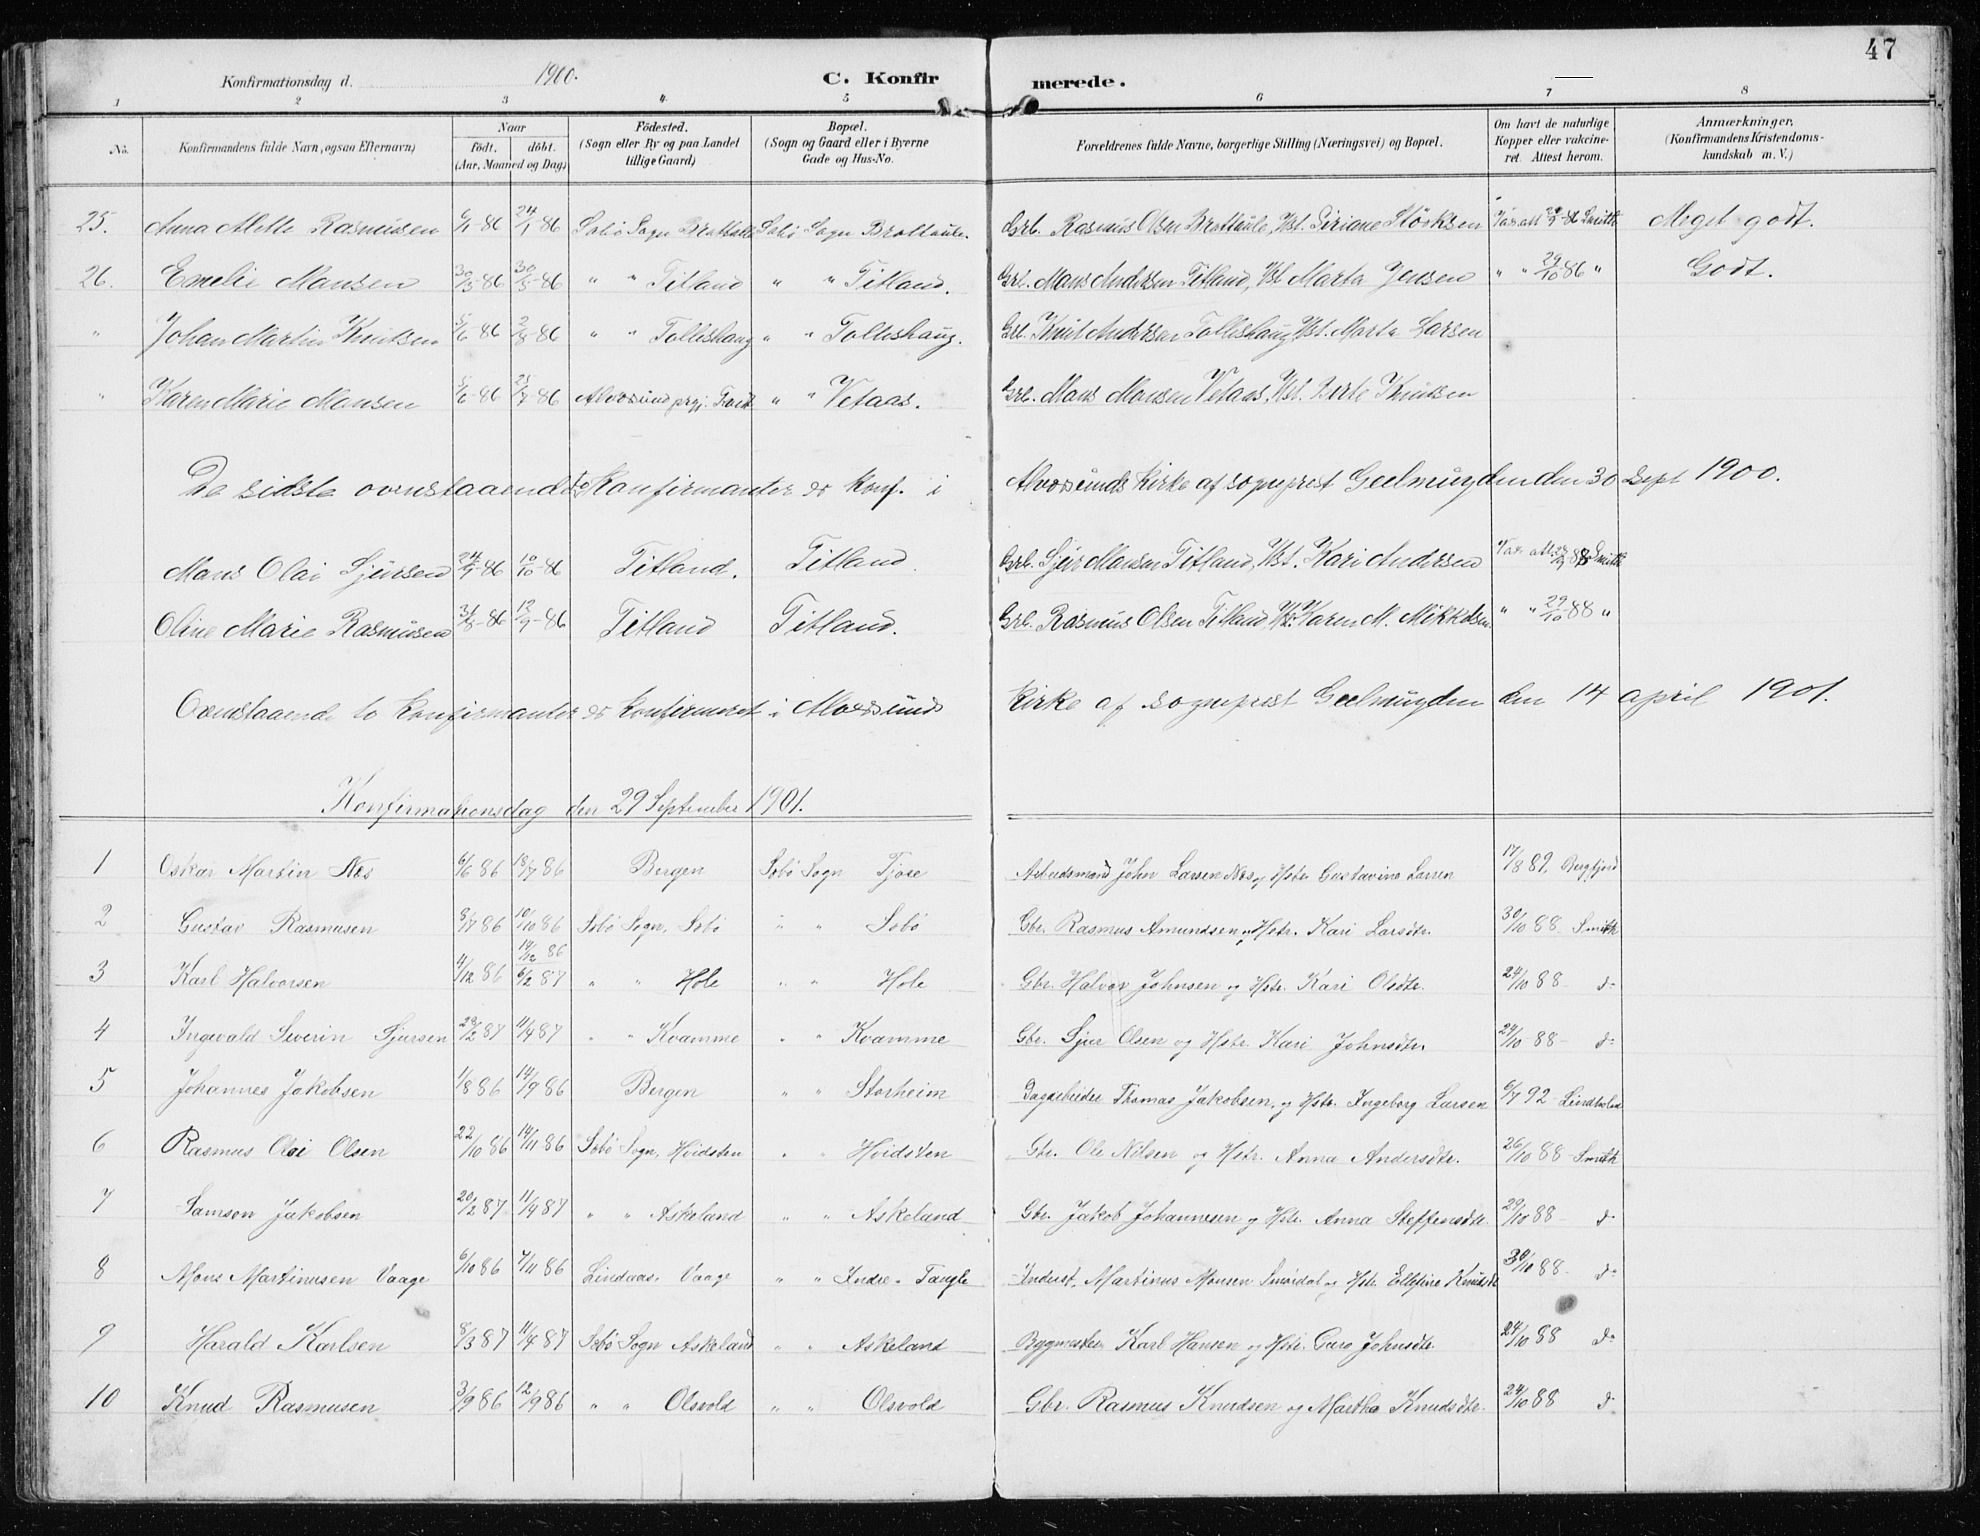 47
Konfirmationsdag d. 1900. C. Konfirmerede.
1 2 3 4. 5 6 7 8
No. Konfirmandens fulde Navn, ogsaa Efternavn) Naar født. døbt. (Aar, Maaned og Dag) Fødested. (Sogn eller By og paa Landet tillige Gaard) Bopæl. (Sogn og Gaard eller i Byerne Gade og Hus-No. Forældrenes fulde Navne, borgerlige Stilling (Næringsvei) og Bopæl. Om havt de naturlige Kopper eller vakcineret. Attest herom. Anmærkninger. (Konfirmandens Kristendomskundskab m. V.)
25. Anna Mette Rasmussen 6/1-86 24/1 86 Sæbø Sogn Brattaule Sæbø Sogn Brattaule. Grb. Rasmus Olsen Brattaule, Hst. Siriane Størksen Smith Meget godt.
26. Emelie Mansen 30/3-86 30/5-86 " " Titland " " Titland. Grb. Mans Andersen Titland, Hst Marta Jensen " " 29/10 86 " Godt.
" Johan Martin Knutsen 5/6 86 2/8-86 " " Tolleshaug " " Tolleshaug. Grb. Knut Andersen Tolleshaug Hst. Marta Larsen
" Karen Marie Mansen 5/6-86 25/7-86 Alversund prgj. " " Vetaas. Grb. Mans Mansen Vetaas, Hst. Berte Knutsen
De sidste ovenstaaende Konfirmanter er konf. i Alversunds kirke af sogneprest Geelmuyden den 30 Sept 1900.
Mans Olai Sjursen 24/9-86 10/10-86 Titland. Titland. Grb. Sjur Mansen Titland, Hst. Kari Andersen Smith
Oline Marie Rasmussen 31/8-86 19/9-86 Titland Titland. Grb. Rasmus Olsen Titland, Hst. Karen M. Mikkelsen. " " 29/10-88 "
Ovenstaaende to konfirmanter er konfirmeret i Alversunds kirke af sogneprest Geelmuyden den 14 april 1901.
Konfirmationsdag den 29 September 1901.
1 Oskar Martin Næs 6/6 86 18/7 86 Bergen Sæbø Sogn Tjore Arbeidsmand John Larsen Næs og Hstr. Gustavine Larsen 17/8 89, Bergfjord
2 Gustav Rasmusen 8/8 86 10/10 86 Sæbø Sogn, Sæbø " " Sæbø Gbr. Rasmus Amundsen og Hstr. Kari Larsdtr. 30/10 88 - Smith
3 Karl Halvorsen 4/12 86 19/12 86 6/2 87 " " Hole " " Hole Gbr. Halvor Johnsen og Hstr. Kari Olsdtr. 24/10 88 - do
4 Ingevald Severin Sjursen 23/2 87 11/4 87 " " Kvamme " " Kvamme Gbr. Sjur Olsen og Hstr. Kari Johnsdtr. 24/10 88 - do
5 Johannes Jakobsen 1/8 86 14/9 86 Bergen " " Storheim Dagarbeider Thomas Jakobsen, og Hstr. Ingeborg Larsen 6/7 92 - Lindholm
6 Rasmus Olai Olsen 22/10 86 14/11 86 Sæbø Sogn, Høidsten " " Høidsten Gbr. Ole Nilsen og Hstr. Anna Andersdtr. 26/10 88 - Smith
7 Samson Jakobsen 20/2 87 11/4 87 " " Askeland " " Askeland Gbr. Jakob Johannesen og Hstr. Anna Steffensdtr. 29/10 88 - do
8 Mons Martinusen Vaage 6/10 86 7/11 86 Lindaas. Vaage " " Indre-Tangle Inderst, Martinus Monsen Smørdal og Hstr. Ellefine Knudsdtr 30/10 88 - do
9 Harald Karlsen 8/3 87 11/4 87 Sæbø Sogn Askeland " " Askeland Bygmester Karl Hansen og Hstr. Guro Johnsdtr. 24/10 88 do
10 Knud Rasmusen 3/9 86 12/9 86 " " Olsvold " " Olsvold Gbr. Rasmus Knudsen og Martha Knudsdtr. 24/10 88 do